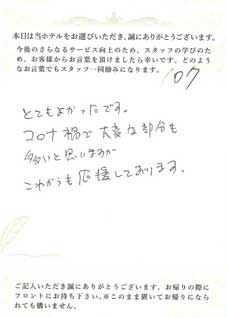 本日は当ホテルをお選びいただき、誠にありがとうございます。
今後のさらなるサービス向上のため、スタッフの学びのた
め、お客様からお言葉を頂けましたら幸いです。どのよう
なお言葉でもスタッフ一同励みになります。
107
とてもよかったです。
コロナ禍で大変な部分も
多いと思いますが
これからも応援しております。
ご記入いただき誠にありがとうございます。お帰りの際に
フロントにお持ち下さい。※このまま置いてお帰りになら
れても構いません。